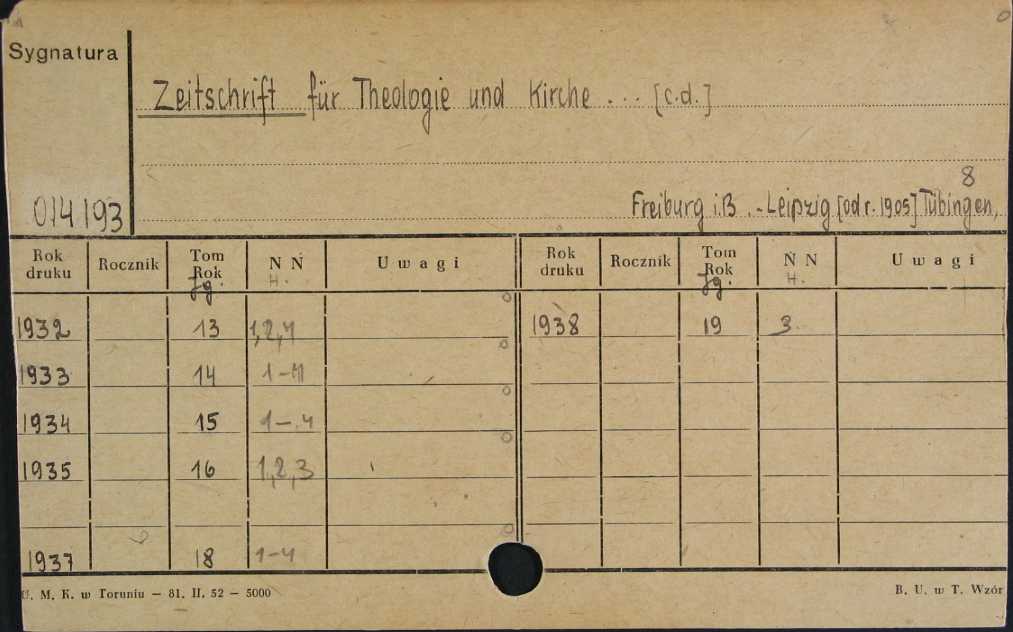 Sygnatura
Zeitschrift für Theologie und Kirche ... [c.d.]
8
014193
Freiburg i.B. - Leipzig [od r. 1905] Tübingen,
Rok druku Rocznik Tom Rok Jg. N N H. Uwagi Rok druku Rocznik Tom Rok Jg. N N H. Uwagi
1932 13 1,2,4 1938 19 3
1933 14 1-4
1934 15 1-4
1935 16 1,2,3
1937 18 1-4
U. M. K. w Toruniu — 81. II. 52 — 5000 B. U. w T. Wzór